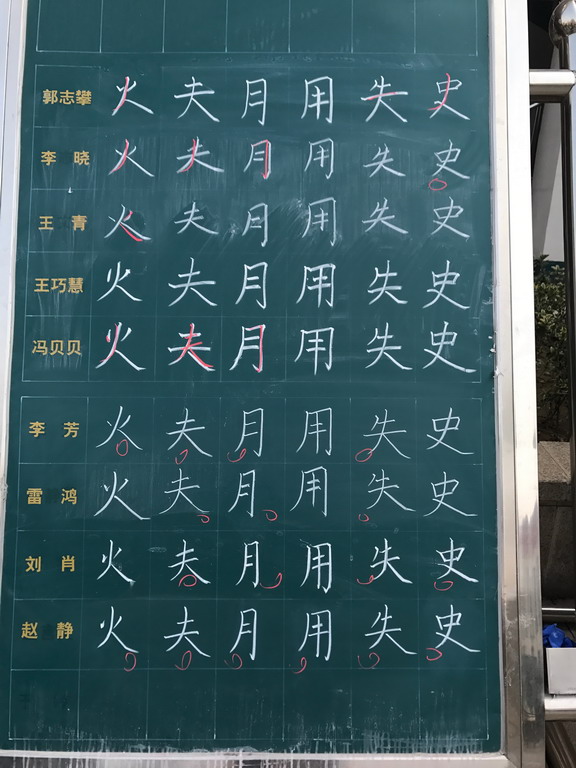 郭志攀 火 夫 月 用 失 史
李晓 火 夫 月 用 失 史
王青 火 夫 月 用 失 史
王巧慧 火 夫 月 用 失 史
冯贝贝 火 夫 月 用 失 史
李芳 火 夫 月 用 失 史
雷鸿 火 夫 月 用 失 史
刘肖 火 夫 月 用 失 史
赵静 火 夫 月 用 失 史